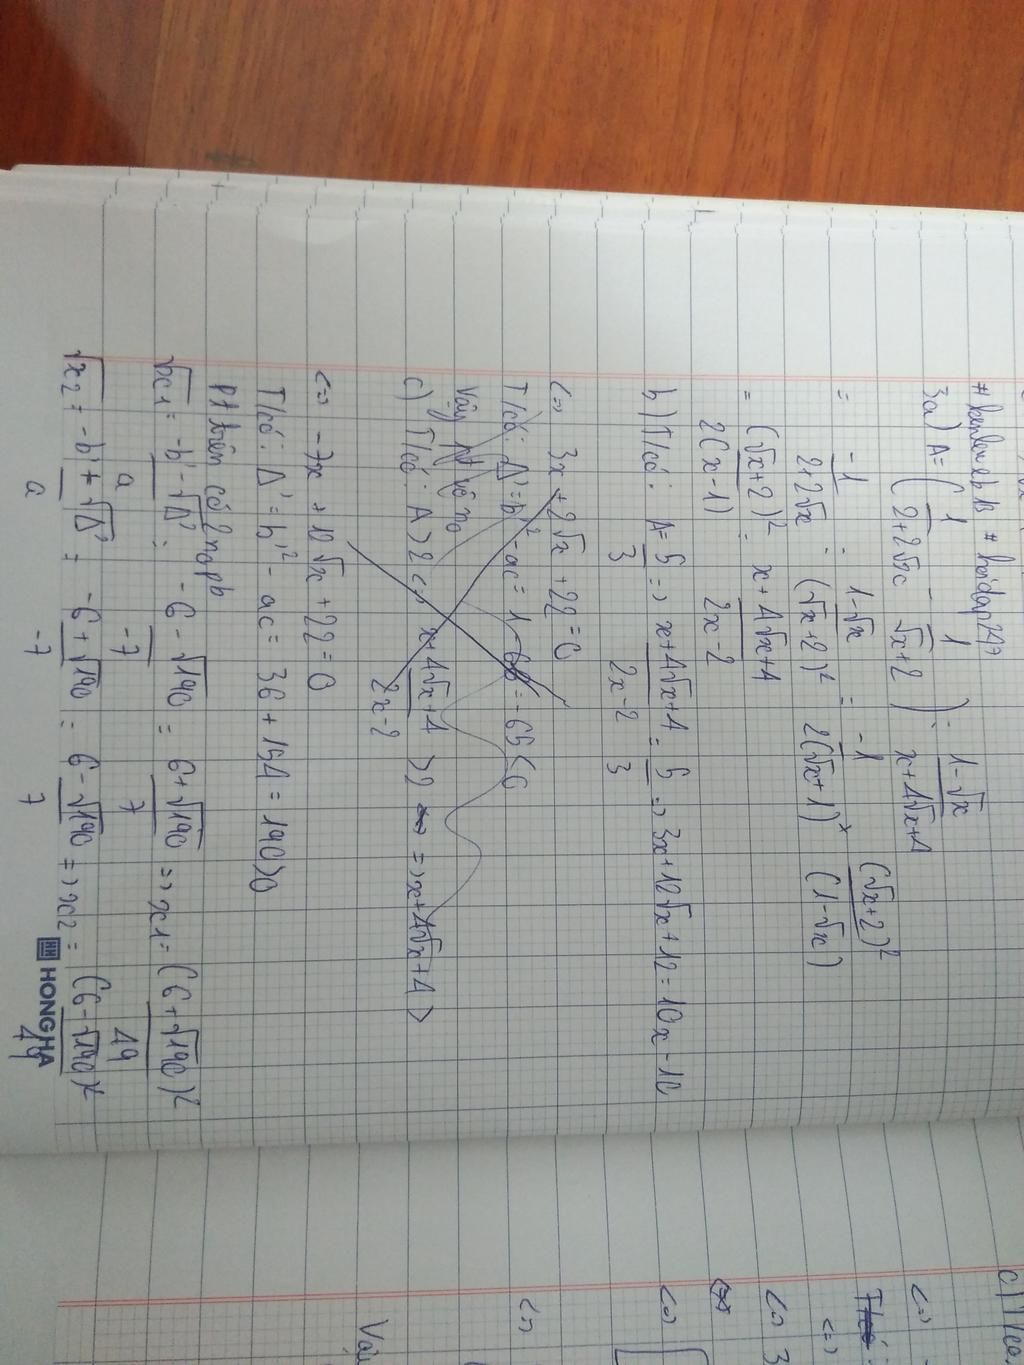 # kenlevel 11 # hoidap247
3a) A = ( 1/(2+2√x) - 1/(√x+2) ) : (1-√x)/(x+4√x+4)
= -1/(2+2√x) : (1-√x)/(√x+2)² = -1/2(√x+1) × (√x+2)²/(1-√x)
= (√x+2)²/2(x-1) = (x+4√x+4)/(2x-2)
b) T/có: A = 5/3 => (x+4√x+4)/(2x-2) = 5/3 => 3x+12√x+12 = 10x-10
<=> 3x+2√x+22=0
T/có: Δ'=b'²-ac = 1-66=-65<0
Vậy pt vô no
c) T/có: A>2 <=> (x+4√x+4)/(2x-2) >2 <=> => x+4√x+4>
<=> -7x+12√x+22=0
T/có: Δ'=b'²-ac=36+154=190>0
pt trên có 2 no pb
√x1 = (-b'-√Δ')/a = (-6-√190)/-7 = (6+√190)/7 => x1 = (6+√190)²/49
√x2 = (-b'+√Δ')/a = (-6+√190)/-7 = (6-√190)/7 => x2 = (6-√190)²/49
HONG HA
<=>
T/có
<=>
<=> 3
<=>
<=>
<=>
Vậy